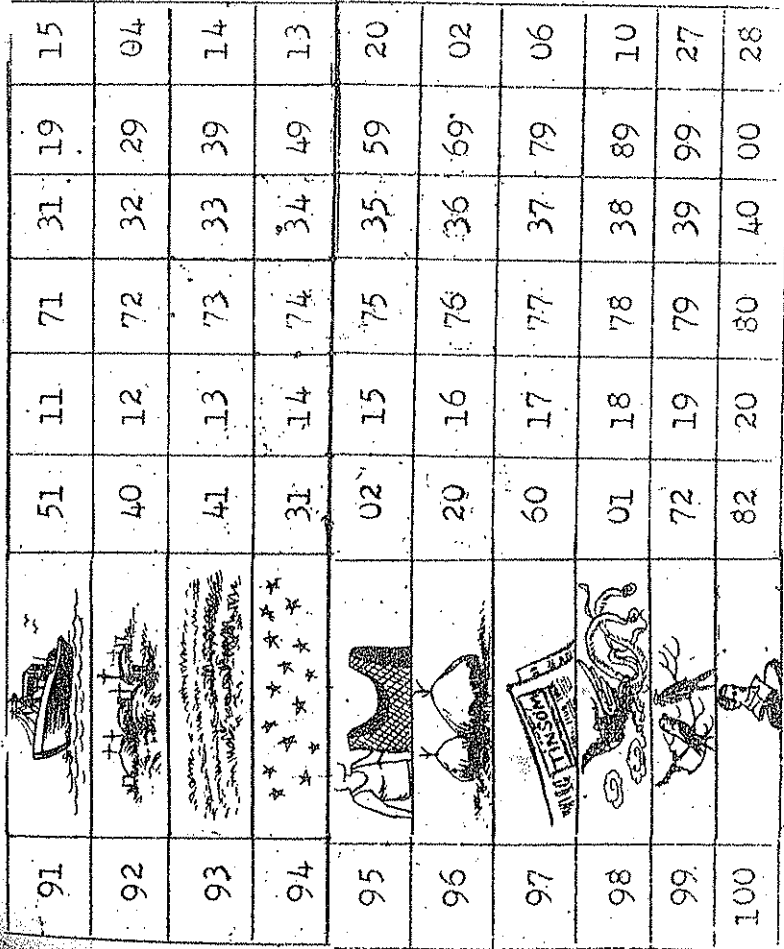 91 51 11 71 31 19 15
92 40 12 72 32 29 04
93 41 13 73 33 39 14
94 31 14 74 34 49 13
95 02 15 75 35 59 20
96 20 16 76 36 69 02
97 TINSOM 60 17 77 37 79 06
98 01 18 78 38 89 10
99 72 19 79 39 99 27
100 82 20 80 40 00 28